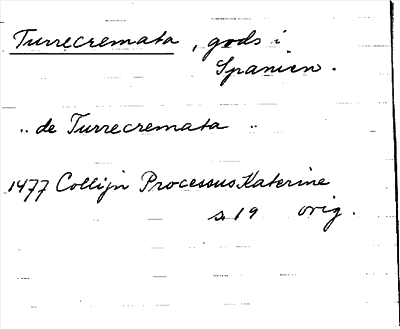 Turrecremata, gods i
Spanien.
„ de Turrecremata „
1477 Collijn Processus Katerine
s 19 orig.